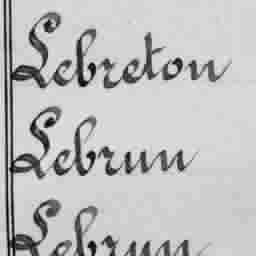 Lebreton
Lebrun
Lebrun